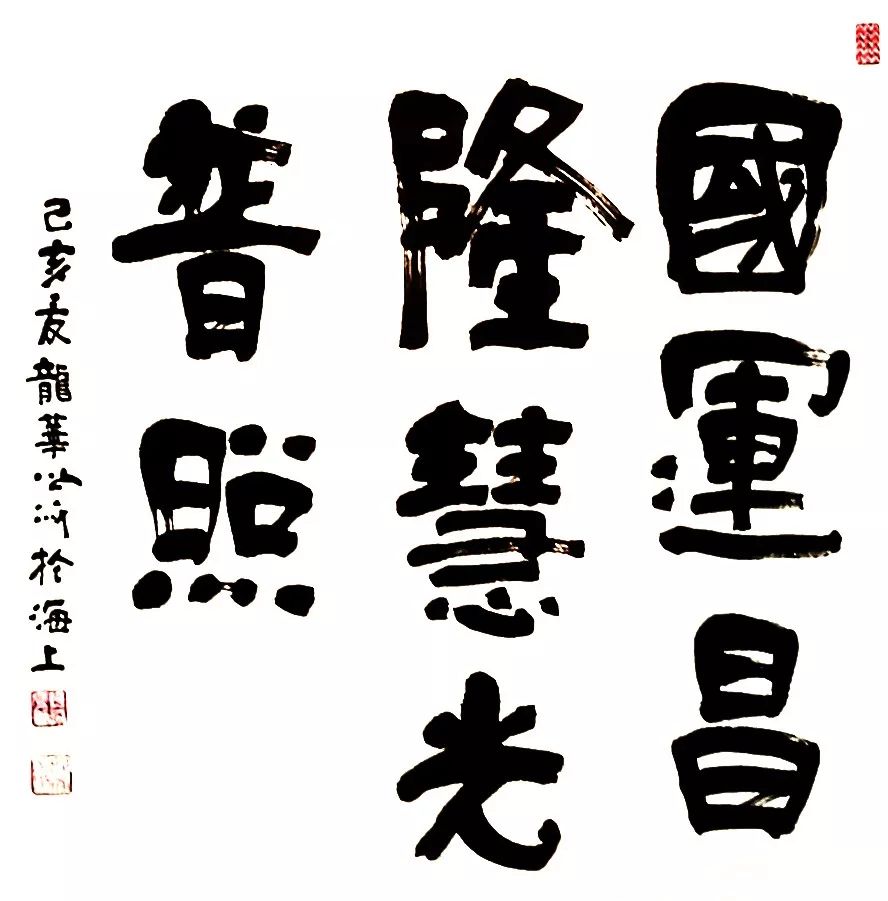 國運昌
隆慧光
普照
己亥夏龍華照誠於海上